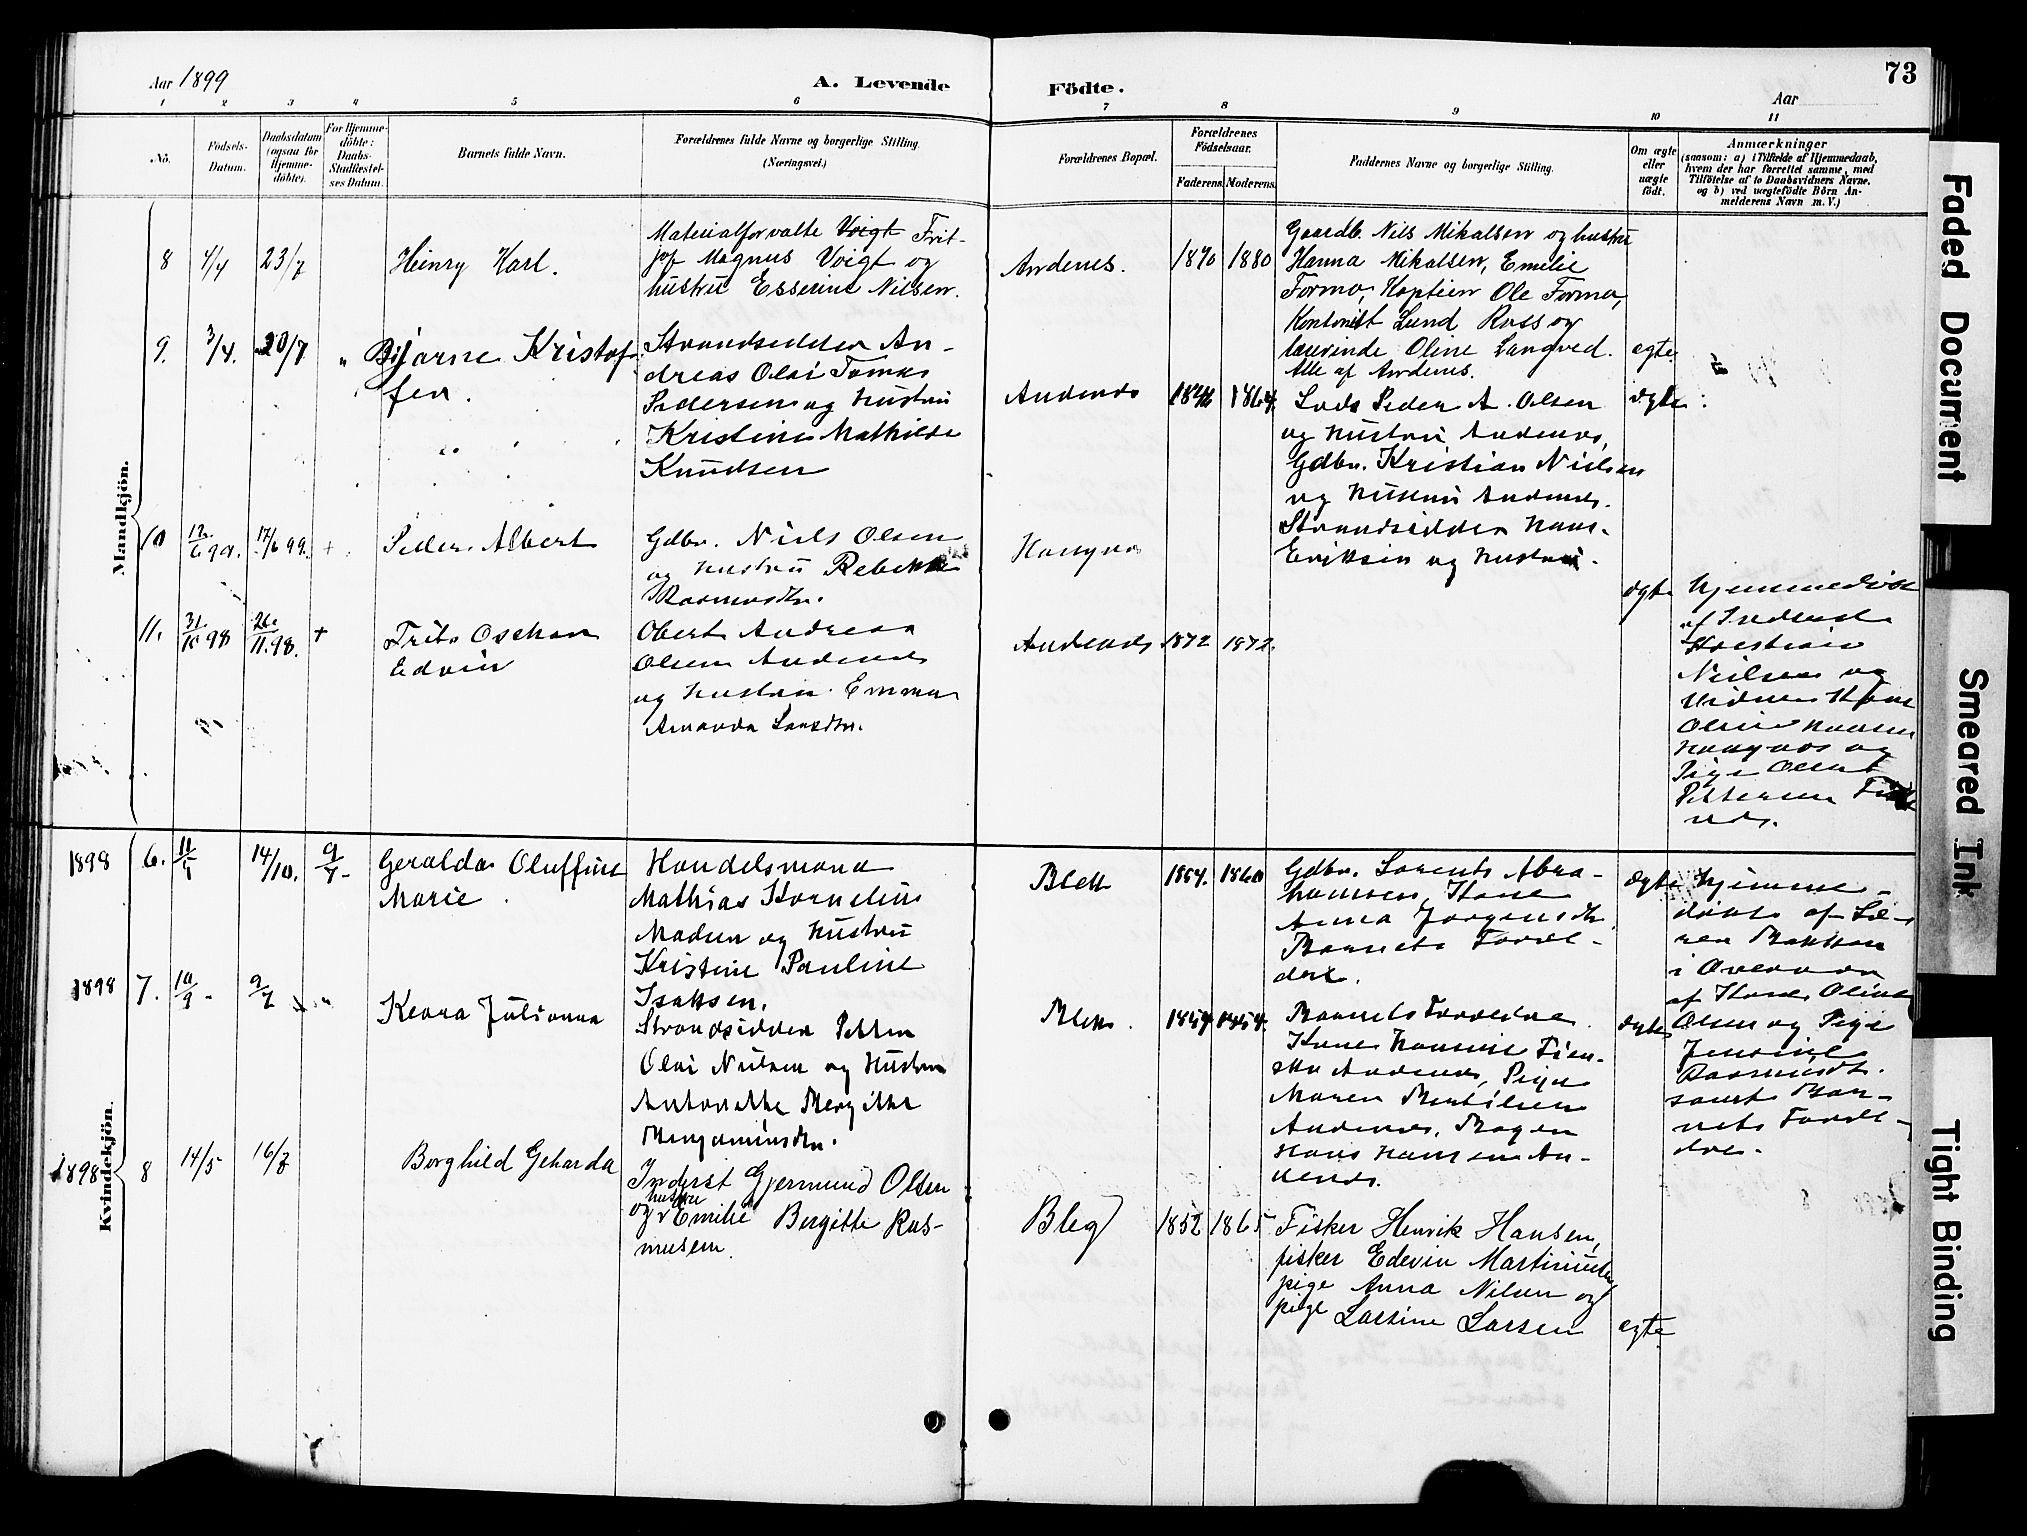 Aar 1899
A. Levende
Födte.
Aar
73
1
2
3
4
5
6
7
8
9
10
11
No.
Födsels-
Datum.
Daabsdatum
(ogsaa for
Hjemme-
döbte).
For Hjemme-
döbte:
Daabs-
Stadfæstel-
ses Datum.
Barnets fulde Navn.
Forældrenes fulde Navne og borgerlige Stilling.
(Næringsvei.)
Forældrenes Bopæl.
Forældrenes
Födselsaar.
Faderens.
Moderens.
Faddernes Navne og borgerlige Stilling.
Om ægte
eller
uægte
födt.
Anmærkninger
(saasom: a) i Tilfælde af Hjemmedaab,
hvem der har forrettet samme, med
Tilföielse af to Daabsvidners Navne,
og b) ved uægtefödte Börn An-
melderens Navn m. V.)
Mandkjön.
8
4/4
23/7
Heinry Karl.
Materialforvalte Voigt Frit-
jof Magnus Voigt og
hustru Esserine Nilsen.
Andenes.
1870
1880
Gaardb. Nils Mikalsen og hustru
Hanna Mikalsen, Emilie
Formo, Kaptien Ole Formo,
Kontorist Lund Rass og
lærerinde Oline Langved.
Alle af Andenes.
ægte
9.
3/4.
20/7
Bjarne Kristof-
fer.
Strandsidder An-
dreas Olai Tomas
Pedersen og Hustru
Kristine Mathilde
Knudsen
Andenes
1864.
Lods Peder A. Olsen
og Hustru Andenes,
Gdbr. Kristian Nielsen
og Hustru Andenes.
Strandsidder Hans
Eriksen og Hustru.
ægte
10
17/6 99.
+
Peder Albert
Gdbr. Niels Olsen
og Hustru Rebekka
Rasmusdtr.
Haugnes
11.
31/10 98
26/11.98.
+
Frits Osckar
Edvin
Obert Andreas
Olsen Andenes
og Hustru. Emma
Amanda Larsdtr.
Andenes
1872
1872.
ægte
Hjemmedöbt
af Inderst
Kristian
Nielsen og
Vidner Kone
Oline Hansen
Haugnes og
Pige
Pettersen
Kvindekjön.
1898
6.
11/5
14/10.
9/7
Geralda Oluffine
Marie
Handelsmand
Mathias Kornelius
Madsen og Hustru
Kristine Pauline
Isaksen.
Blek
1864.
1860
Gdbr. Lorents Abra-
hamsen, Kone
Anna Jørgensdtr.
Barnets Foræl-
dre.
ægte
Hjemme-
döbte af Læ-
rer Bakken
i Overaas
af Kone Oline
Olsen og Pige
Jensine
Rasmusdt.
samt Bar-
nets Foræl-
dre.
1898
7.
10/9
9/7
Keara Julianna
Strandsidder Petter
Olai Nielsen og Hustru
Antonette Bergitte
Benjaminsdtr.
Blek.
1854.
Barnets Forældre
Kone Hansine Fien-
Andenes, Pige
Maren Bertilsen
Andenes, Bager
Hans Hansen An-
denes.
ægte
1898
8
14/5
16/7
Borghild Geharda
Inderst Gjermund Olsen
hustru
og Emilie Bergitte Ras-
musen.
Bleg
1852
1865
Fisker Henrik Hansen,
fisker Edevin Martinussen
pige Anna Nilsen og
pige Larsine Larsen
ægte
Faded Document
Smeared Ink
Tight Binding